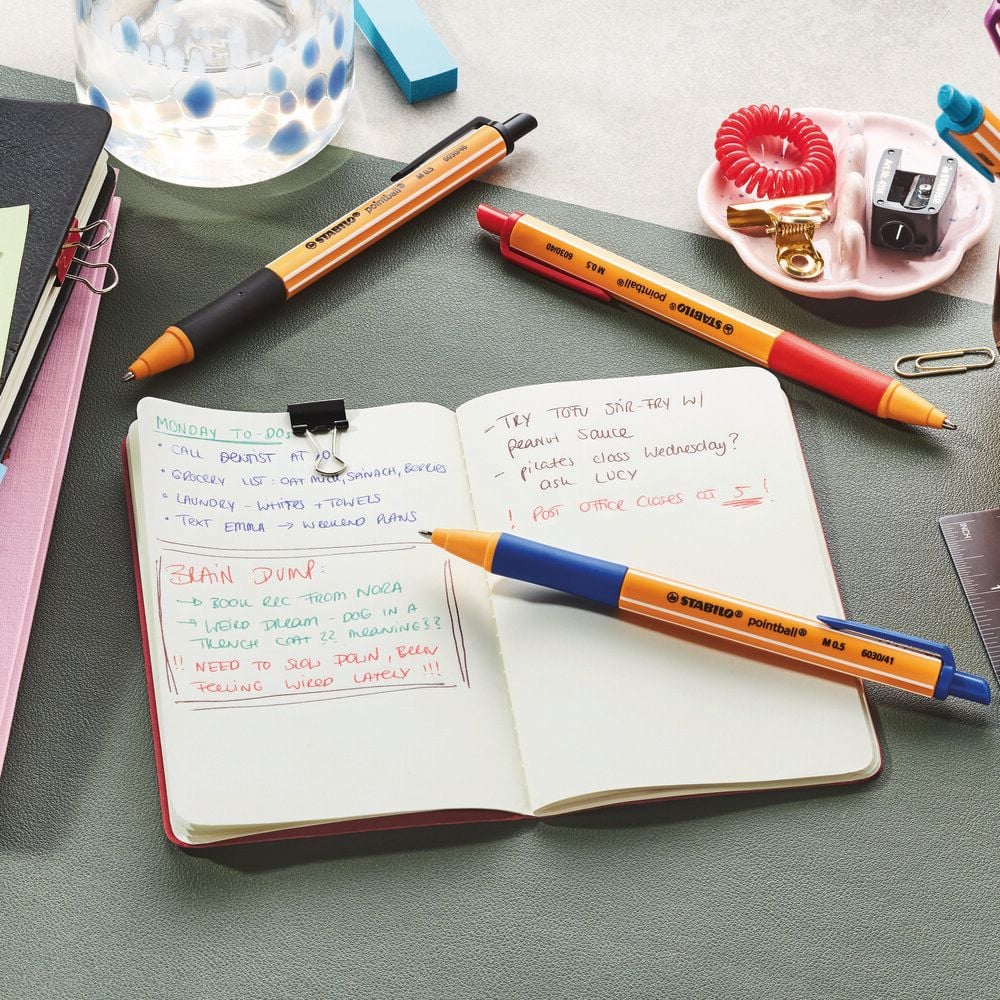 STABILO® pointball® M 0.5 6030/46
STABILO® pointball® M 0.5 6030/40
MONDAY TO-DOs
• CALL DENTIST AT 10
• GROCERY LIST: OAT MILK, SPINACH, BERRIES
• LAUNDRY - WHITES + TOWELS
• TEXT EMMA → WEEKEND PLANS
BRAIN DUMP:
→ BOOK REC FROM NORA
→ WEIRD DREAM - DOG IN A
TRENCH COAT ?? MEANING??
!! NEED TO SLOW DOWN, BEEN
FEELING WIRED LATELY !!!
- TRY TOFU STIR-FRY W/
peanut sauce
- pilates class Wednesday?
ask LUCY
! POST OFFICE CLOSES at 5 !
STABILO® pointball® M 0.5 6030/41
INCH